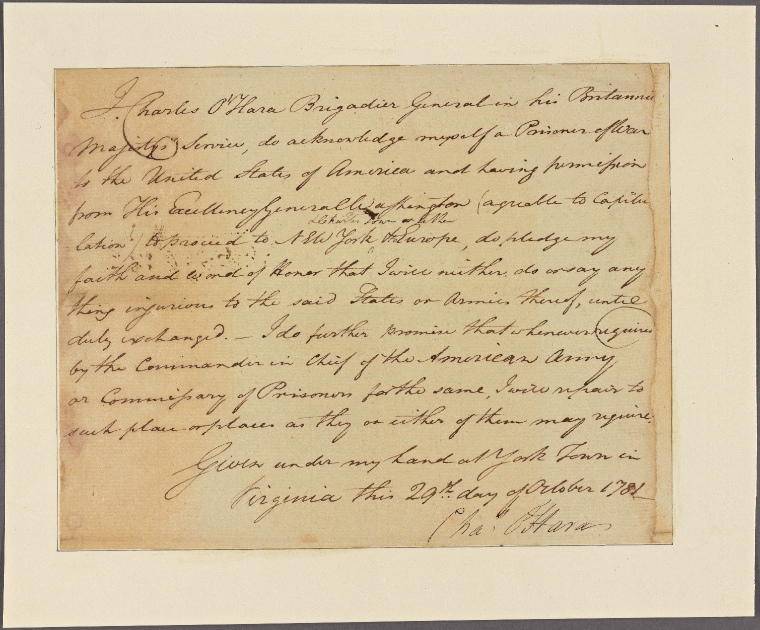 I. Charles O'Hara Brigadier General in his Britannic
Majestys Service, do acknowledge myself a Prisoner of War
to the United States of America and having permission
from His Excellency General Washington (agreable to Capitu
lation) to proceed to New York & Europe, do pledge my
faith and word of Honor that I will neither do or say any
thing injurious to the said States or Armies thereof, until
duly exchanged. — I do further promise that whenever required
by the Commander in Chief of the American Army
or Commissary of Prisoners for the same, I will repair to
such place or places as they or either of them may require.
Given under my hand at York Town in
Virginia this 29th. day of October 1781
Chas. O'Hara